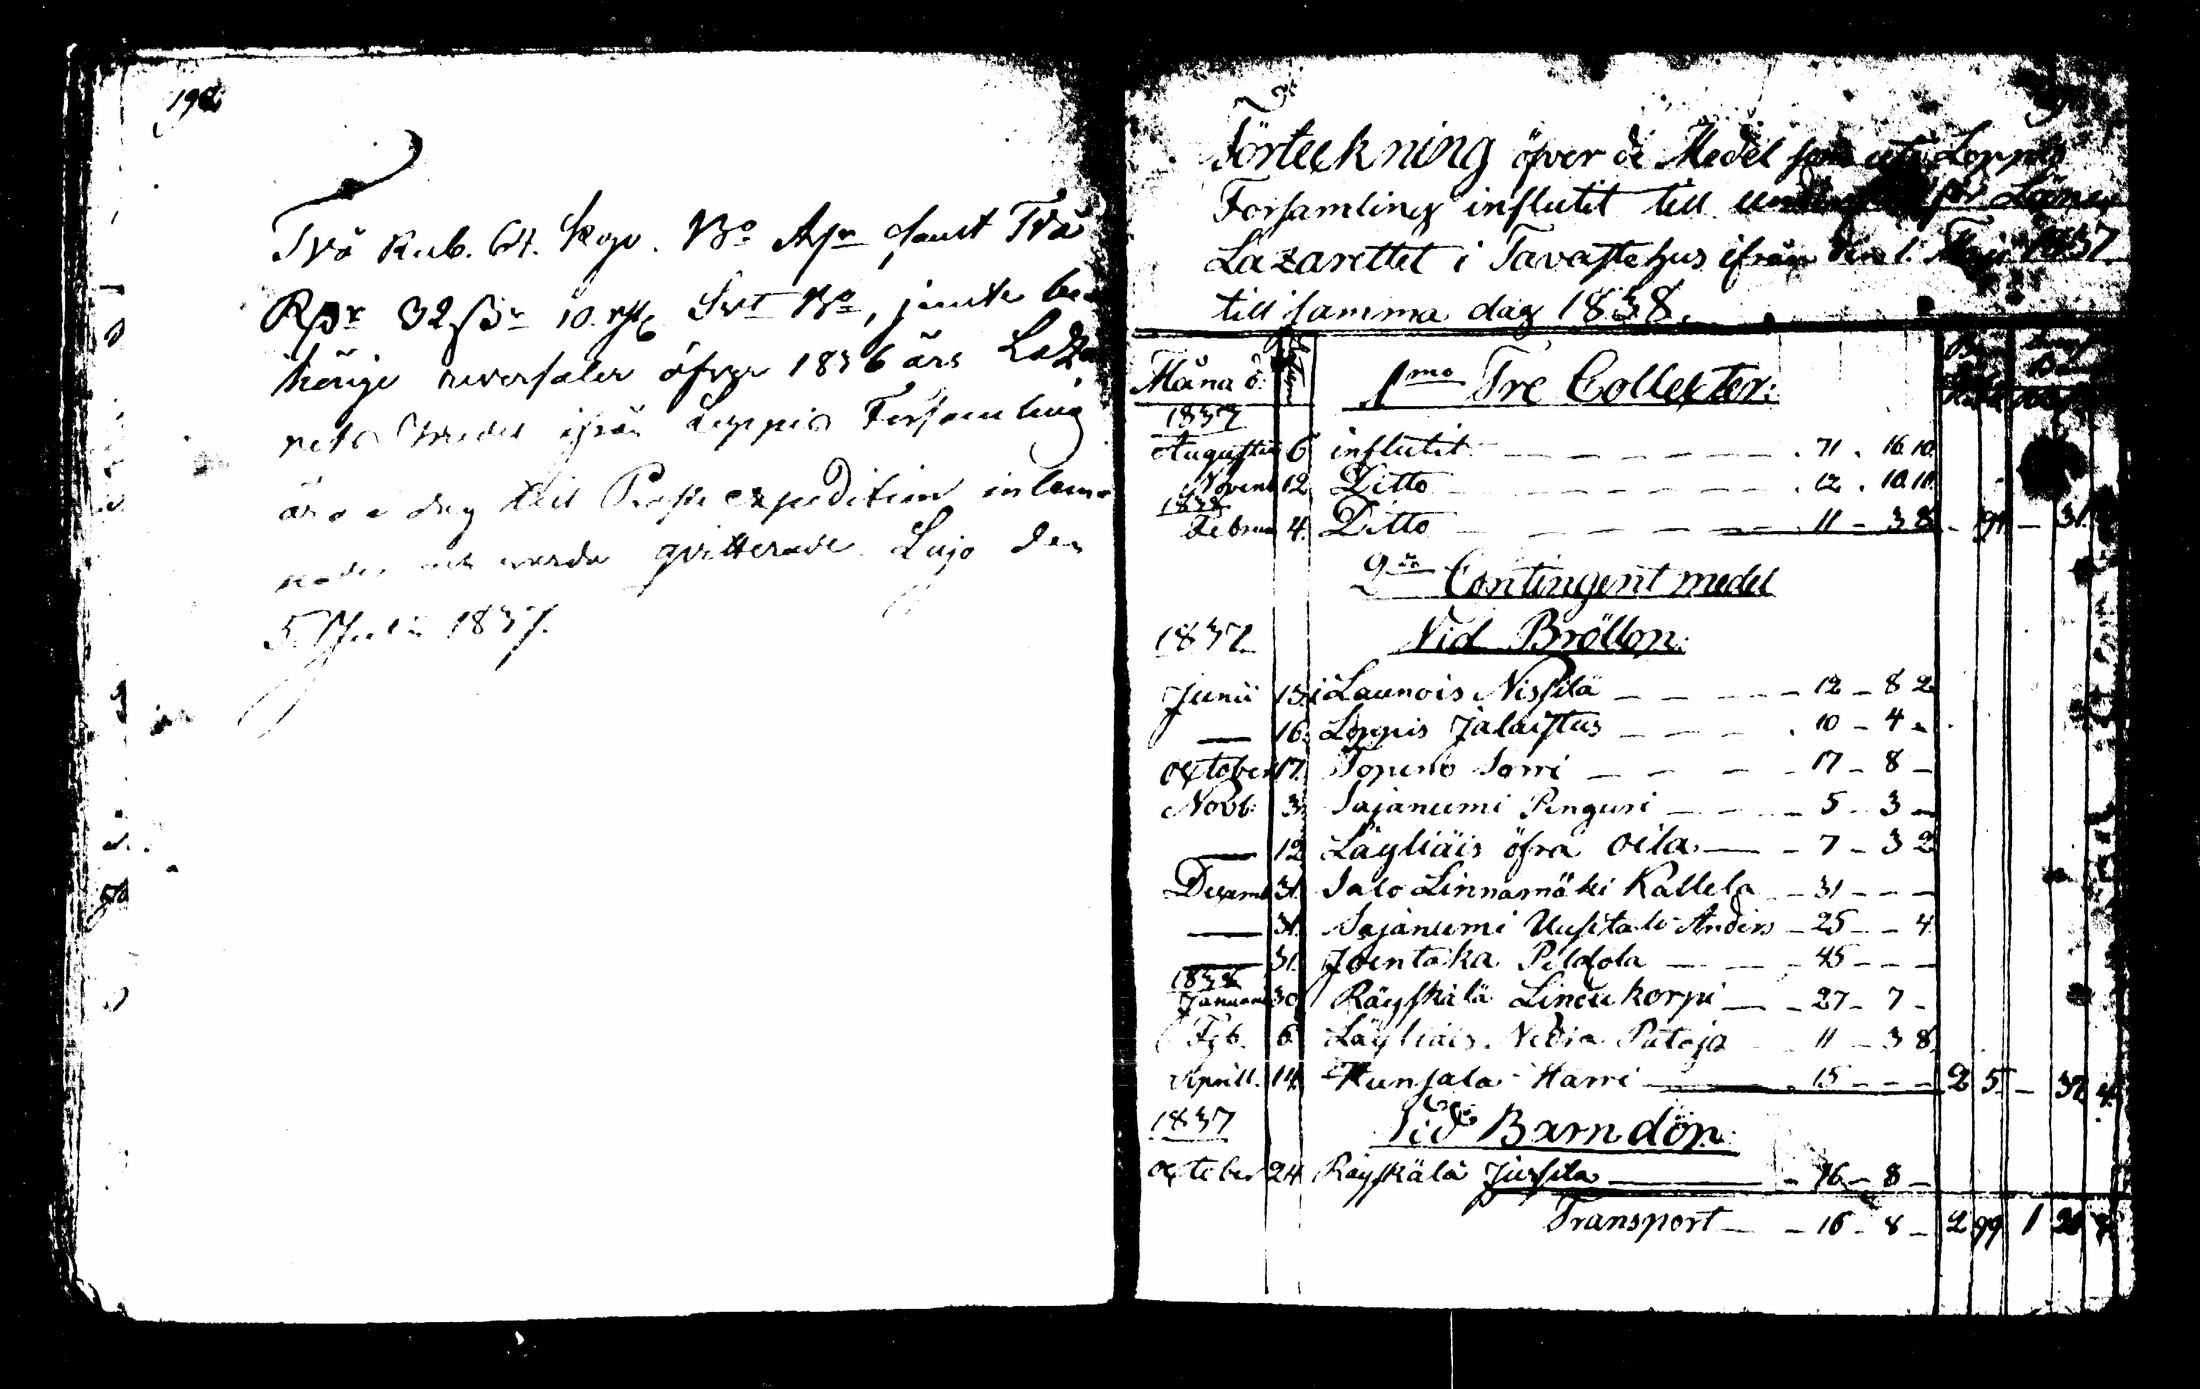 196
Två Rub. 64. Kop. B:o Ass. samt Två
Rdr 32 sr 10. rst. Svt B:o, jemte be-
hörige reversaler öfver 1836 års Laza
rets Medel ifrån Loppis Församling
äro i dag till Prosti expedition inlem-
nade och warda qvitterade. Lojo den
5 Julii 1837.
Förteckning öfver de Medel som uti Loppis
Forsamling influtit till för Läns
Lazarettet i Tavastehus ifrån den 1. Maji 1837
till samma dag 1838.
Måna d: 1mo Tre Collekter:
1837
Augusti 6 influtit 71. 16. 10.
Novemb 12. Ditto 12. 10. 10.
1838
Februa 4. Ditto 11 - 3 8 - 94 - 31.
2do Contingent medel
1837 Vid Bröllop:
Junii 15. i Launois Nissilä 12 - 8 2
16. Loppis Jalaistus 10 - 4 -
October 17. Topeno Sorri 17 - 8 -
Novb: 3. Sajanumi Penguri 5 - 3 -
12 Läyliäis öfra Oila 7 - 3 2
Decemb 31. Salo Linnamäki Kallela 31 - - -
31. Sajanumi Uusitalo Anders 25 - - 4
31. Joentaka Peldola 45 - - -
1838
Januari 30 Räyskälä Lineukorpi 27 - 7 -
Feb. 6 Läyliäis Nedra Pataja 11 - 3 8
Aprill. 14. Hunsala Harri 15 - - - 2 5 - 37 4.
1837 Vid Barndop:
October 24. Räyskälä Jussila 16 - 8 -
Transport 16 - 8 - 2 99 1